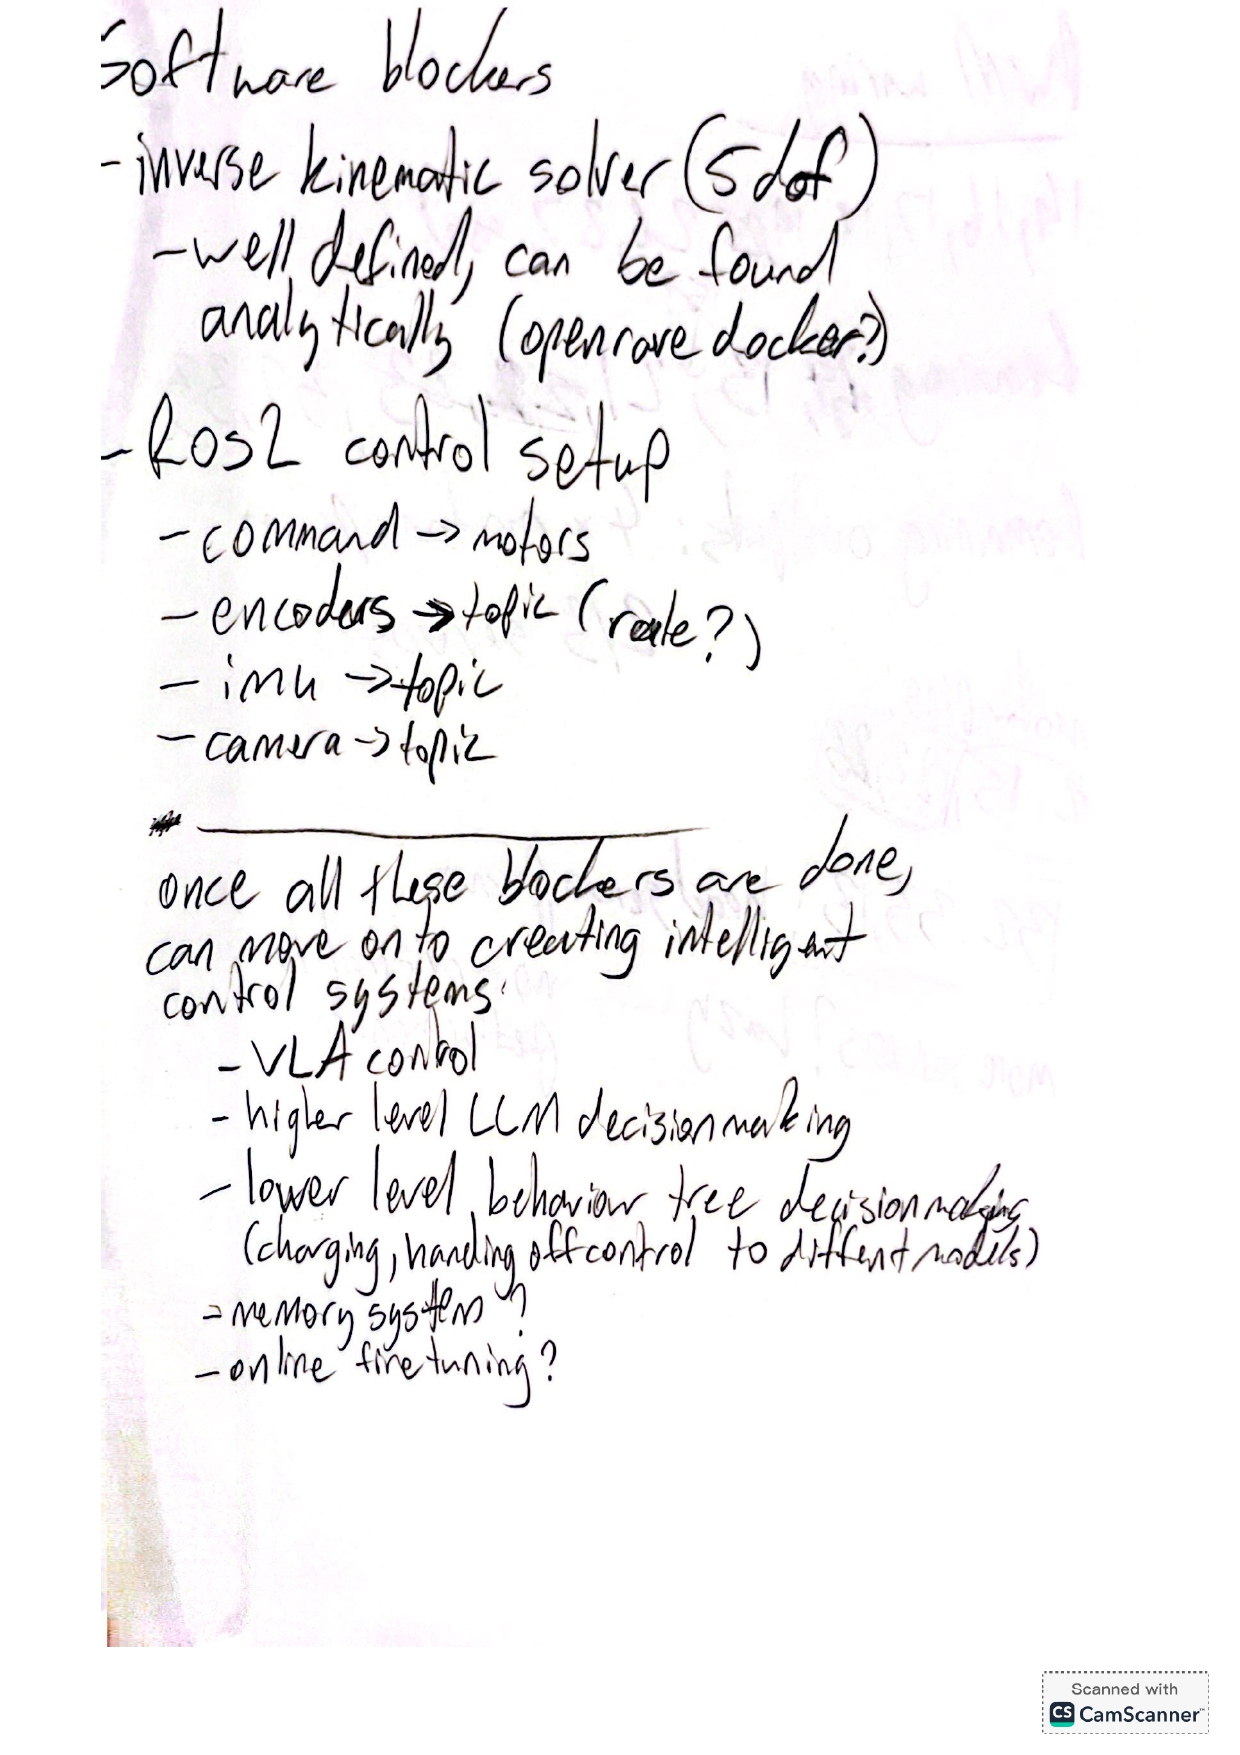 Software blockers
- inverse kinematic solver (5dof)
- well defined, can be found
analytically (openrave docker?)
- Ros2 control setup
- command -> motors
- encoders -> topic (rate?)
- imu -> topic
- camera -> topic
once all these blockers are done,
can move on to creating intelligent
control systems:
- VLA control
- higher level LLM decision making
- lower level behaviour tree decision making
(charging, handing off control to diffent models)
- memory system?
- online finetuning?
Scanned with
CS CamScanner